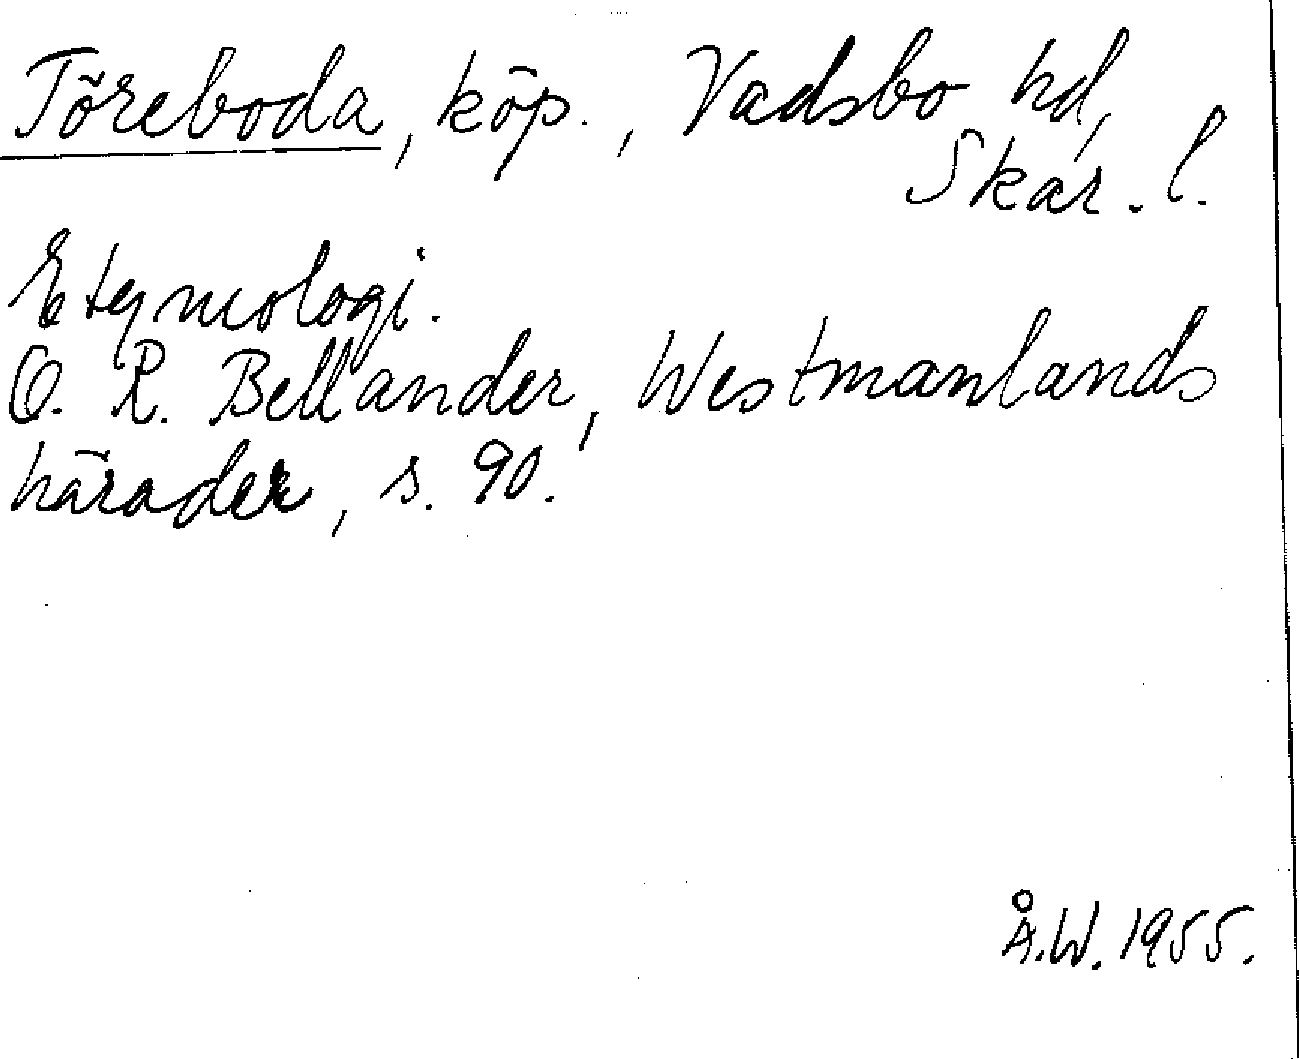 Töreboda, köp., Vadsbo hd,
Skar. l.
Etymologi.
O. R. Bellander, Westmanlands
härader, s. 90.
Å.W. 1955.